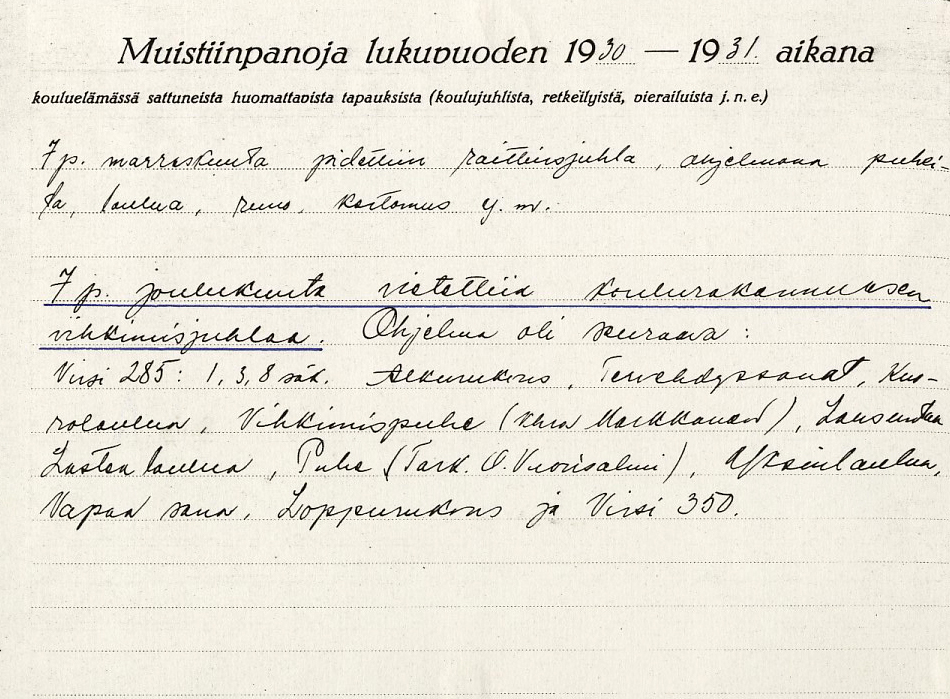 Muistiinpanoja lukuvuoden 1930 — 1931. aikana
kouluelämässä sattuneista huomattavista tapauksista (koulujuhlista, retkeilyistä, vierailuista j. n. e.)
7 p. marraskuuta pidettiin raittiusjuhla, ohjelmana puhei-
ta, laulua, runo, kertomus y. m.
7 p. joulukuuta vietettiin koulurakennuksen
vihkimisjuhlaa. Ohjelma oli seuraava:
Virsi 285: 1, 3, 8 säk. Alkurukous, Tervehdyssanat, Kuo-
rolaulua, Vihkimispuhe (Markkanen), Lausuntaa
Lasten laulua, Puhe (Tark. O. Vuorisalmi), Yksinlaulua,
Vapaa sana, Loppurukous ja Virsi 350.